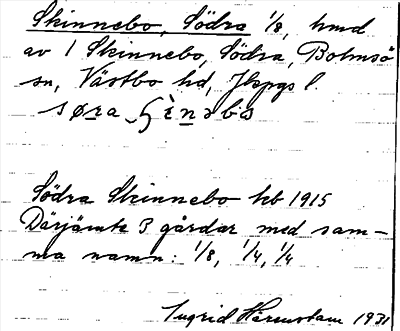 Skinnebo, Södra 1/8, hmd
av 1 Skinnebo, Södra, Bolmsö
sn, Västbo hd, Jkpgs l.
Södra Skinnebo hb 1915
Därjämte 3 gårdar med sam-
ma namn: 1/8, 1/4, 1/4
Ingrid Härenstam 1931